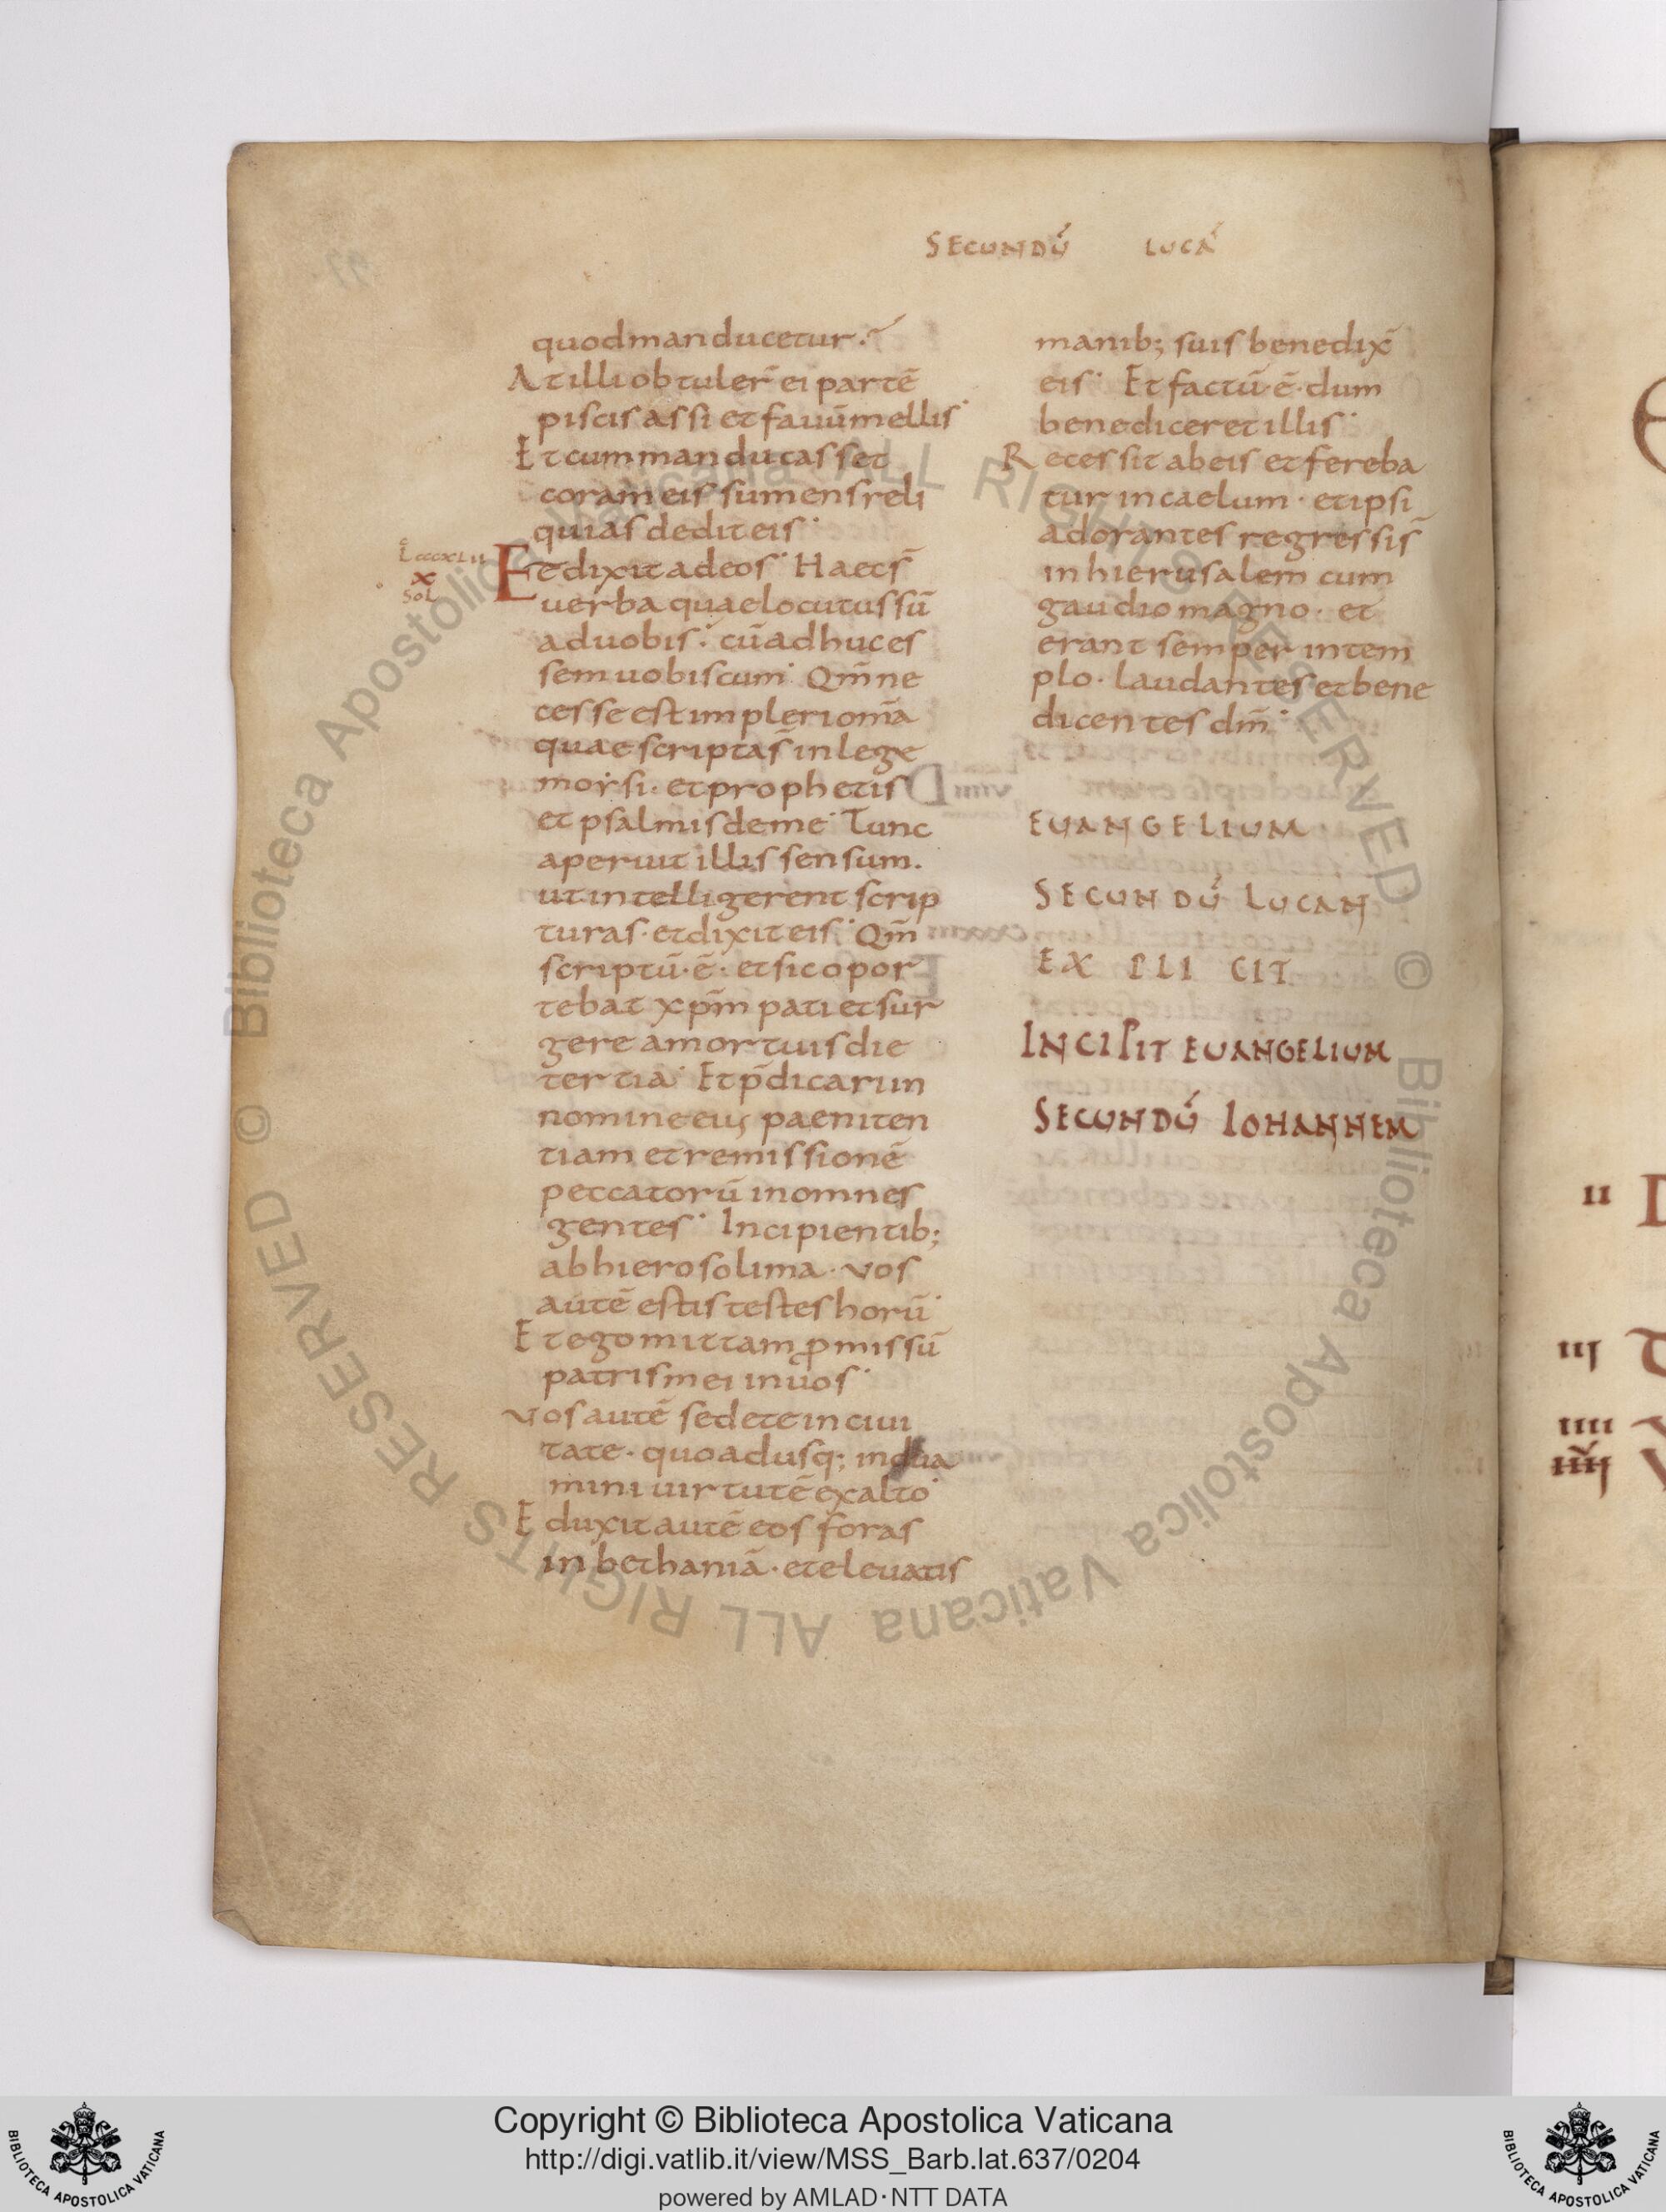 SECUNDŪ LUCĀ
quodmanducetur.
At illi obtuler̄ ei partē
piscis assi et fauūmellis
Et cum manducasset
coram eis sumens reli
quias dedit eis
Lcccxlii
x
Sol
Et dixit ad eos Haec s̄
uerba quae locutus sū
ad uobis. cū adhuc es
sem uobiscum Qm̄ ne
cesse est impleri om̄a
quae scripta s̄ in lege
morsi. et prophetis
et psalmis de me Tunc
aperuit illis sensum.
ut intelligerent scrip
turas. et dixit eis. Qm̄
scriptū. ē. et sic opor
tebat xpm̄ pati et sur
gere a mortuis die
tertia Et p̄dicari in
nomine eius paeniten
tiam et remissionē
peccatorū in omnes
gentes Incipientib;
ab hierosolima. vos
autē estis testes horū
Et ego mittam ꝓmissū
patris mei in uos
Vos autē sedete in ciui
tate. quoadusq; indua
mini uirtutē ex alto
Eduxit autē eos foras
in bethaniā. et eleuatis
manib; suis benedix̄
eis Et factū. ē. dum
benediceret illis
Recessit ab eis et fereba
tur in caelum. et ipsi
adorantes regressi s̄
in hierusalem cum
gaudio magno. et
erant semper in tem
plo. laudantes et bene
dicentes dm̄
EUANGELIUM
SECUNDŪ LUCAN
EX PLI CIT
INCIPIT EUANGELIUM
SECUNDŪ IOHANNEM
II
III
IIII
© Biblioteca Apostolica Vaticana ALL RIGHTS RESERVED © Biblioteca Apostolica Vaticana ALL RIGHTS RESERVED
BIBLIOTECA APOSTOLICA VATICANA
Copyright © Biblioteca Apostolica Vaticana
http://digi.vatlib.it/view/MSS_Barb.lat.637/0204
powered by AMLAD·NTT DATA
BIBLIOTECA APOSTOLICA VATICANA